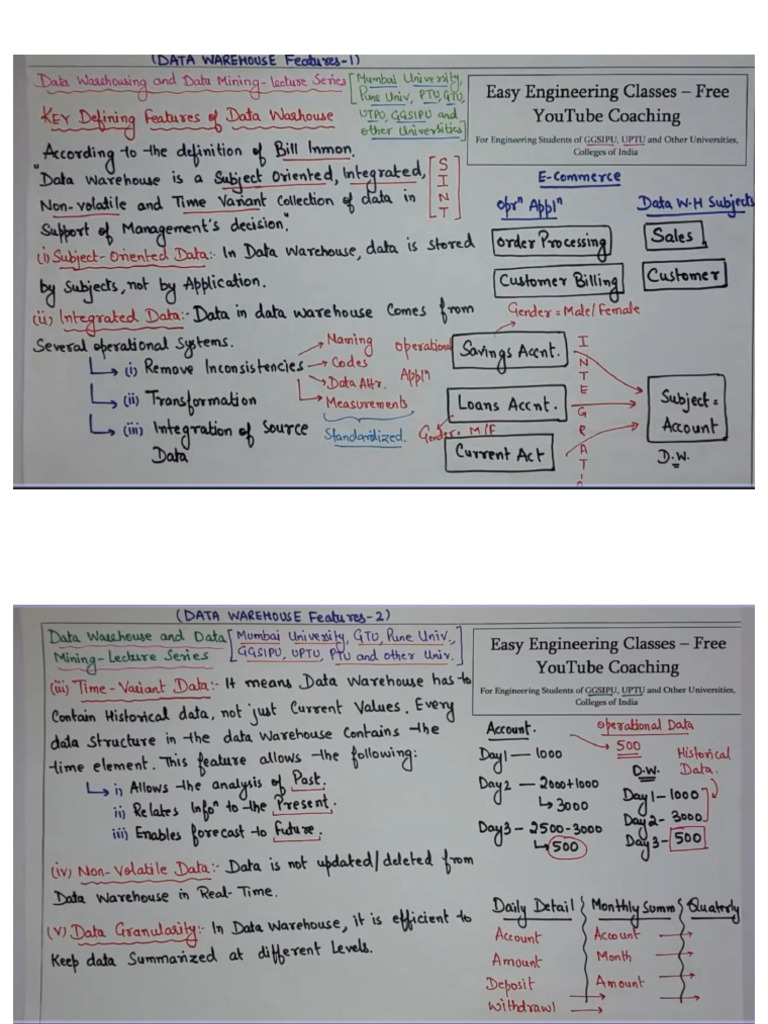 (DATA WAREHOUSE Features-1)
Data Warehousing and Data Mining-lecture Series
[Mumbai University,
Pune Univ, PTU, GTU,
UTPU, GGSIPU and
other Universities]
Easy Engineering Classes – Free
YouTube Coaching
For Engineering Students of GGSIPU, UPTU and Other Universities,
Colleges of India
KEY Defining Features of Data Waehouse
According to the definition of Bill Inmon.
"Data Warehouse is a Subject Oriented, Integrated,
Non-volatile and Time Variant Collection of data in
Support of Management's decision."
[S
I
N
T]
(i) Subject-Oriented Data:- In Data Warehouse, data is stored
by Subjects, not by Application.
(ii) Integrated Data:- Data in data warehouse Comes from
Several operational Systems.
(i) Remove Inconsistencies
(ii) Transformation
(iii) Integration of Source
Data
Naming
Codes
Data Attr.
Measurements
Standardized.
E-Commerce
oprⁿ Applⁿ
Data W.H Subjects
Order Processing
Sales
Customer Billing
Customer
Gender = Male/Female
operational
Applⁿ
Savings Accnt.
Loans Accnt.
Gender = M/F
Current Act
I
N
T
E
G
R
A
T
Subject =
Account
D.W.
(DATA WAREHOUSE Features-2)
Data Waehouse and Data
Mining-Lecture Series
[Mumbai University, GTU, Pune Univ.,
GGSIPU, UPTU, PTU and other Univ.]
Easy Engineering Classes – Free
YouTube Coaching
For Engineering Students of GGSIPU, UPTU and Other Universities,
Colleges of India
(iii) Time-Variant Data:- It means Data Warehouse has to
Contain Historical data, not just Current Values. Every
data Structure in the data Warehouse Contains the
time element. This feature allows the following:
i) Allows the analysis of Past.
ii) Relates Infoⁿ to the Present.
iii) Enables forecast to Future.
(iv) Non-Volatile Data:- Data is not updated/deleted from
Data Warehouse in Real-Time.
(v) Data Granulasity:- In Data Warehouse, it is efficient to
Keep data Summarized at different Levels.
Account.
Day1 — 1000
Day2 — 2000+1000
↳ 3000
Day3 - 2500-3000
↳ 500
operational Data
500
D.W.
Historical
Data.
Day1 - 1000
Day2 - 3000
Day3 - 500
Daily Detail
Account
Amount
Deposit
Withdrawl
Monthly Summ
Account
Month
Amount
Quaterly